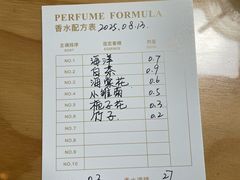 PERFUME FORMULA
香水配方表 2025.08.13.
NO.1 海洋 0.7
NO.2 白茶 0.9
NO.3 海棠花 0.6
NO.4 小雏菊 0.5
NO.5 栀子花 0.3
NO.6 竹子 0.2
NO.7
NO.8
NO.9
NO.10